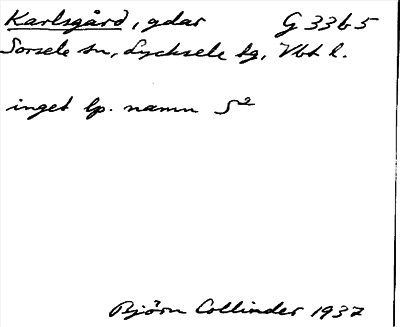 Karlsgård, gdar G 33 b 5
Sorsele sn, Lycksele lg, Vbt l.
inget lp. namn S²
Björn Collinder 1937